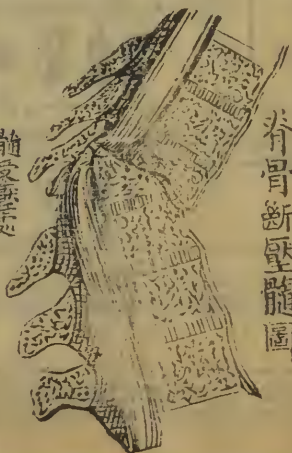 脊骨斷壓髓圖
髓受壓處